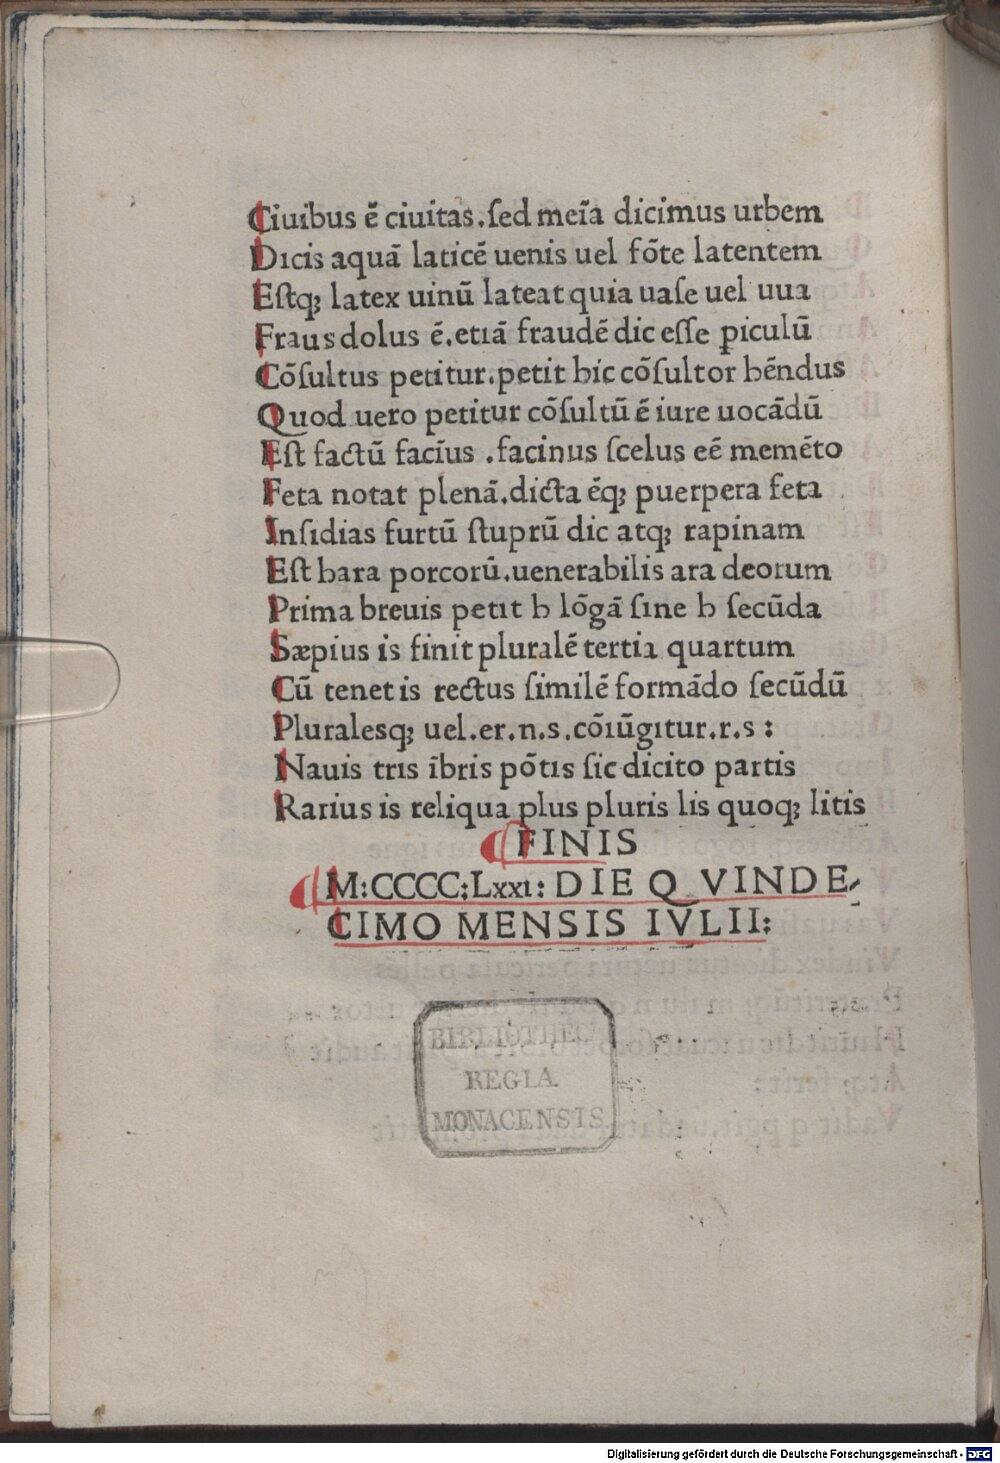 Ciuibus ē ciuitas.ſed meīa dicimus urbem
Dicis aquā laticē uenis uel fōte latentem
Eſtqꝫ latex uinū lateat quia uaſe uel uua
Fraus dolus ē.etiā fraudē dic eſſe ꝑiculū
Cōſultus petitur.petit hic cōſultor hēndus
Quod uero petitur cōſultū ē iure uocādū
Eſt factū facīus .facinus ſcelus eē memēto
Feta notat plenā.dicta ēqꝫ puerpera feta
Inſidias furtū ſtuprū dic atqꝫ rapinam
Eſt hara porcorū.uenerabilis ara deorum
Prima breuis petit h lōgā ſine h ſecūda
Sæpius is finit pluralē tertia quartum
Cū tenet is rectus ſimilē formādo ſecūdū
Pluralesqꝫ uel.er.n.s.cōiūgitur.r.s :
Nauis tris ībris pōtis ſic dicito partis
Rarius is reliqua plus pluris lis quoqꝫ litis
FINIS
M:CCCC:Lxxi: DIE QVINDE-
CIMO MENSIS IVLII:
BIBLIOTHEC
REGIA
MONACENSIS
Digitalisierung gefördert durch die Deutsche Forschungsgemeinschaft - DFG